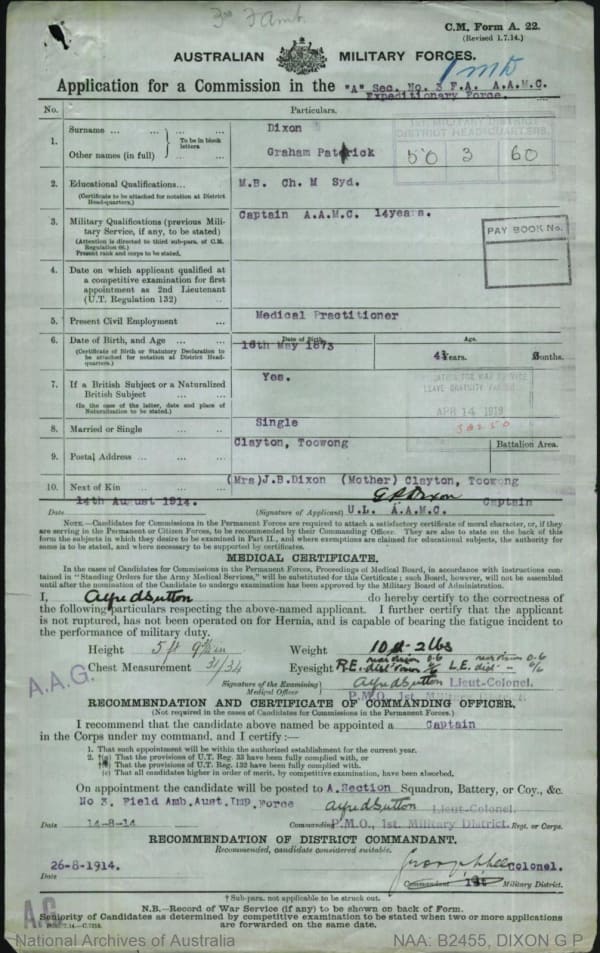 3rd Famb.
C.M. Form A. 22.
(Revised 1.7.14.)
AUSTRALIAN MILITARY FORCES.
1 MD
Application for a Commission in the "A" Sec. No. 3 F.A. A.A.M.C.
Expeditionary Force.
No. Particulars.
1. Surname ... ... To be in block letters Dixon
Other names (in full) Graham Patrick
DISTRICT HEADQUARTERS.
50 3 60
2. Educational Qualifications... M.B. Ch. M Syd.
(Certificate to be attached for notation at District Head-quarters.)
3. Military Qualifications (previous Military Service, if any, to be stated) Captain A.A.M.C. 14years.
(Attention is directed to third sub-para. of C.M. Regulation 66.)
Present rank and corps to be stated.
PAY BOOK No.
4. Date on which applicant qualified at a competitive examination for first appointment as 2nd Lieutenant (U.T. Regulation 132) ..
5. Present Civil Employment ... Medical Practitioner
6. Date of Birth, and Age ... ... Date of Birth. 16th May 1873 Age. 41years. months.
(Certificate of Birth or Statutory Declaration to be attached for notation at District Head-quarters.)
7. If a British Subject or a Naturalized British Subject ... ... Yes.
(In the case of the latter, date and place of Naturalization to be stated.)
APR 14 1919
8. Married or Single ... ... Single
9. Postal Address ... ... ... Clayton, Toowong
Battalion Area.
10. Next of Kin ... ... ... (Mrs)J.B.Dixon (Mother) Clayton, Toowong
14th August 1914. G P Dixon Captain
Date (Signature of Applicant) U.L. A.A.M.C.
NOTE.—Candidates for Commissions in the Permanent Forces are required to attach a satisfactory certificate of moral character, or, if they
are serving in the Permanent or Citizen Forces, to be recommended by their Commanding Officer. They are also to state on the back of this
form the subjects in which they desire to be examined in Part II., and where exemptions are claimed for educational subjects, the authority for
same is to be stated, and where necessary to be supported by certificates.
MEDICAL CERTIFICATE.
In the cases of Candidates for Commissions in the Permanent Forces, Proceedings of Medical Board, in accordance with instructions con-
tained in "Standing Orders for the Army Medical Services," will be substituted for this Certificate; such Board, however, will not be assembled
until after the nomination of the Candidate to undergo examination has been approved by the Military Board of Administration.
I, Alfred Sutton do hereby certify to the correctness of
the following particulars respecting the above-named applicant. I further certify that the applicant
is not ruptured, has not been operated on for Hernia, and is capable of bearing the fatigue incident to
the performance of military duty.
Height 5 ft Weight 10 st 2 lbs
Chest Measurement 31/34 Eyesight R.E. L.E.
A.A.G.
Signature of the Examining Medical Officer Alfred Sutton Lieut-Colonel.
P.M.O. 1st.
RECOMMENDATION AND CERTIFICATE OF COMMANDING OFFICER.
(Not required in the cases of Candidates for Commissions in the Permanent Forces.)
I recommend that the candidate above named be appointed a Captain
in the Corps under my command, and I certify :—
1. That such appointment will be within the authorized establishment for the current year.
2. †(a) That the provisions of U.T. Reg. 33 have been fully complied with, or
(b) That the provisions of U.T. Reg. 132 have been fully complied with.
(c) That all candidates higher in order of merit, by competitive examination, have been absorbed.
On appointment the candidate will be posted to A.Section Squadron, Battery, or Coy., &c.
No 3. Field Amb.Aust.Imp.Force Alfred Sutton Lieut-Colonel.
Date 14-8-14 Commanding P.M.O., 1st. Military District. Regt. or Corps.
RECOMMENDATION OF DISTRICT COMMANDANT.
Recommended, candidate considered suitable.
26-8-1914. Colonel.
Date Commandant 1st Military District.
† Sub-para. not applicable to be struck out.
N.B.—Record of War Service (if any) to be shown on back of Form.
Seniority of Candidates as determined by competitive examination to be stated when two or more applications
are forwarded on the same date.
A.G.
National Archives of Australia NAA: B2455, DIXON G P